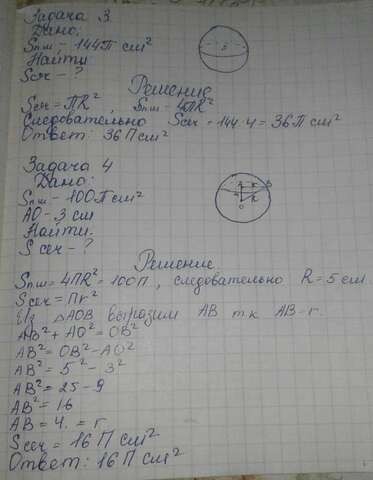 Задача 3
Дано:
Sпш - 144П см²
Найти
Sсеч - ?
Решение
Sсеч = ПR², Sпш = 4ПR²
Следовательно Sсеч = 144:4 = 36П см²
Ответ: 36П см²
Задача 4
Дано:
Sпш - 100П см²
АО - 3 см
Найти:
S сеч - ?
Решение
Sпш = 4ПR² = 100П, следовательно R = 5 см
Sсеч = Пr²
Из △АОВ выразим АВ т.к АВ - r.
АВ² + АО² = ОВ²
АВ² = ОВ² - АО²
АВ² = 5² - 3²
АВ² = 25 - 9
АВ² = 16
АВ = 4. = r
Sсеч = 16П см²
Ответ: 16П см²